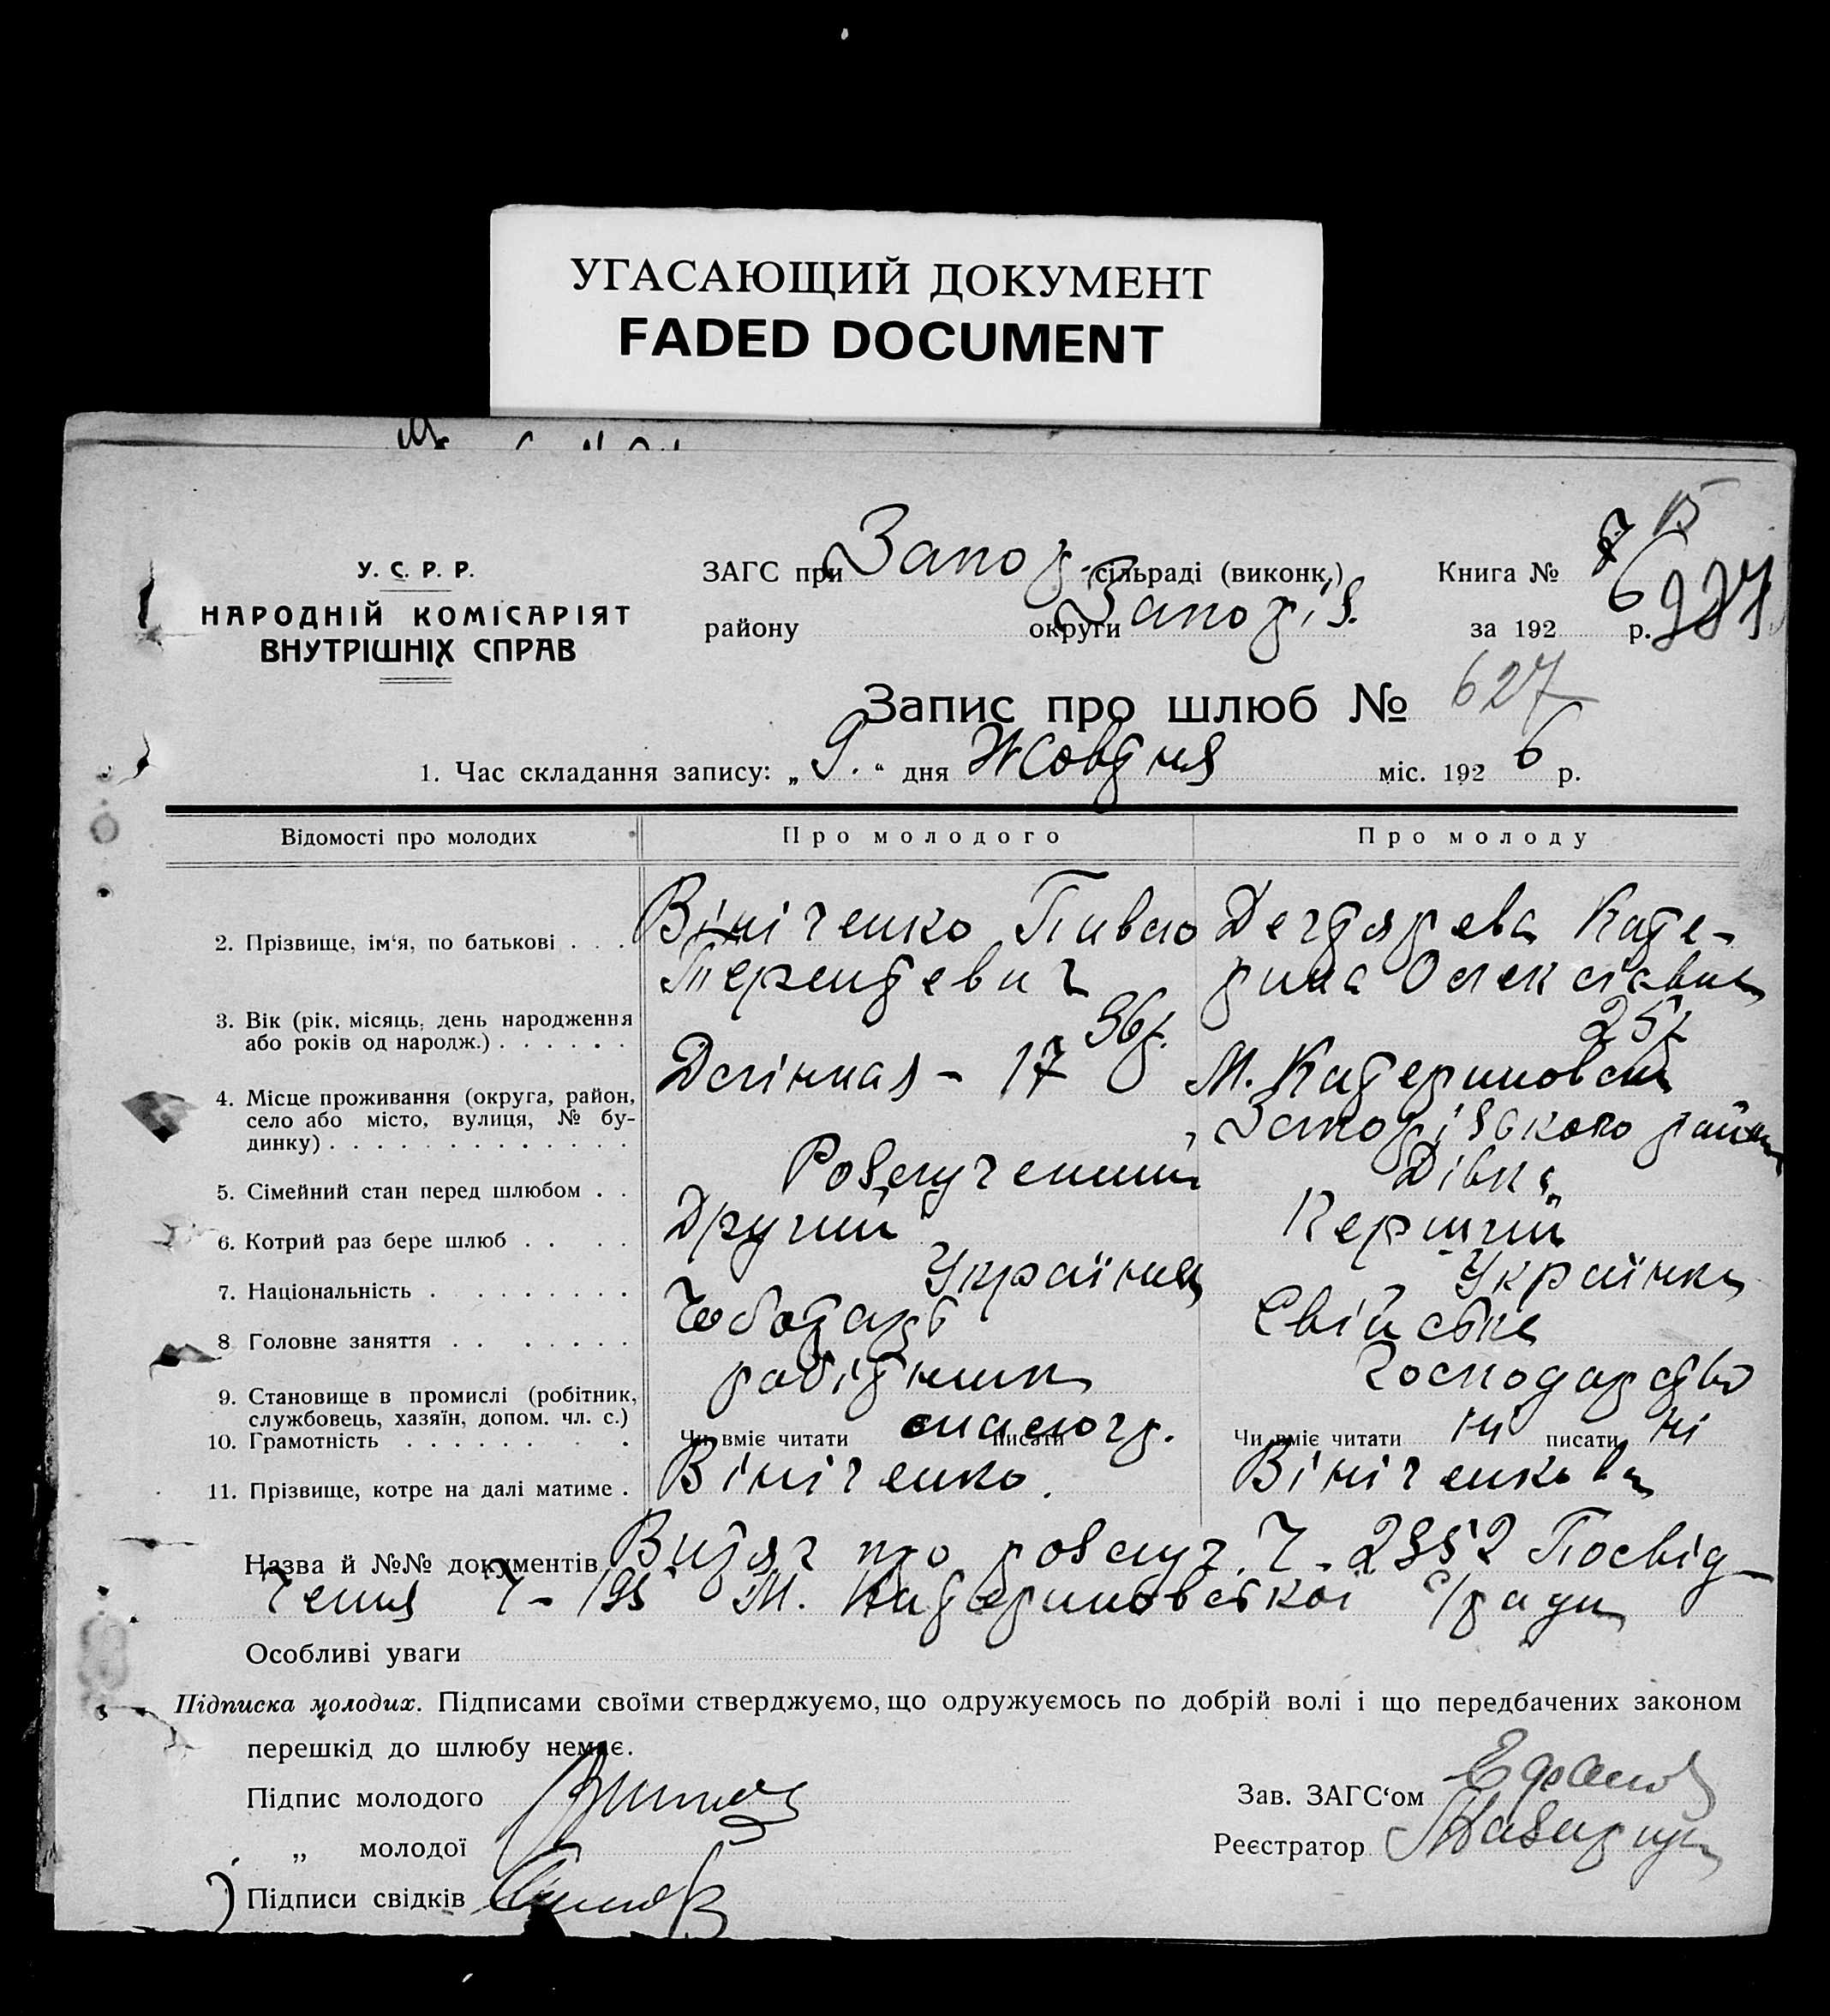 УГАСАЮЩИЙ ДОКУМЕНТ
FADED DOCUMENT
У. С. Р. Р.
НАРОДНІЙ КОМІСАРІЯТ
ВНУТРІШНІХ СПРАВ
ЗАГС при Запор. сільраді (виконк.) Книга №
району округи Запоріз. за 192 6 р.
Запис про шлюб № 627
1. Час складання запису: „ 9. “ дня Жовтня міс. 192 6 р.
Відомості про молодих Про молодого Про молоду
2. Прізвище, ім‘я, по батькові . . . Вініченко Павло Дегтярева Кате-
Терентевич рина Олексіевна
3. Вік (рік, місяць, день народження
або років од народж.) . . . . . . 36р. 25р
4. Місце проживання (округа, район,
село або місто, вулиця, № бу-
динку) . . . . . . . . . . . . . Долінная - 17 М. Катериновка
Запорізького району
5. Сімейний стан перед шлюбом . . Розлучений Дівка
6. Котрий раз бере шлюб . . . . Другий Перший
7. Національність . . . . . . . . Українец Українка
8 Головне заняття . . . . . . . Чоботарь Свійське
9. Становище в промислі (робітник,
службовець, хазяїн, допом. чл. с.) робітник господарство
10. Грамотність . . . . . . . . Чи вміє читати малогр. писати Чи вміє читати ні писати ні
11. Прізвище, котре на далі матиме . Вініченко. Вініченкова
Назва й №№ документів Витяг про розлуч. Ч. 2352 Посвід-
чення Ч- 195 М. Катериновської с/ради
Особливі уваги
Підписка молодих. Підписами своїми стверджуємо, що одружуємось по добрій волі і що передбачених законом
перешкід до шлюбу немає.
Підпис молодого Зав. ЗАГС‘ом
„ молодої Реєстратор
Підписи свідків